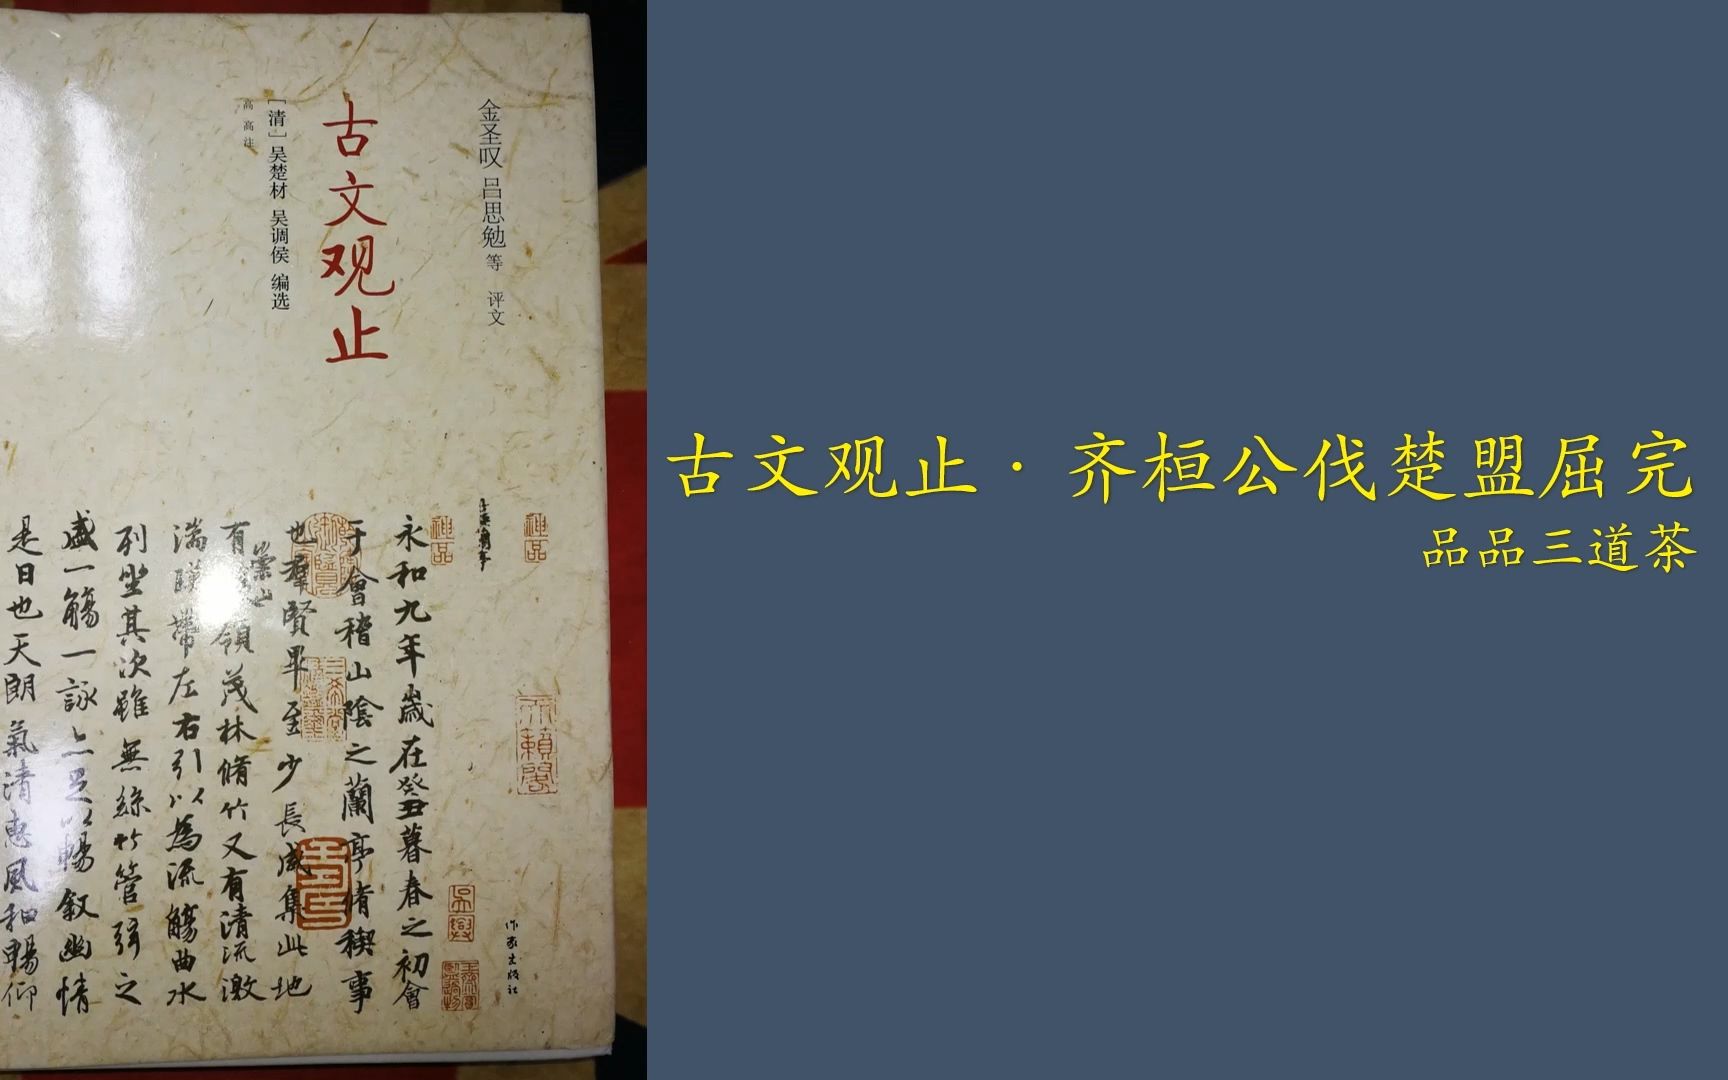 金圣叹 吕思勉 等 评文
古文观止
[清] 吴楚材 吴调侯 编选
高高 注
永和九年歲在癸丑暮春之初會
于會稽山陰之蘭亭脩稧事
也羣賢畢至少長咸集此地
有領茂林脩竹又有清流激
崇山
湍暎帶左右引以為流觴曲水
列坐其次雖無絲竹管弦之
盛一觴一詠亦足以暢叙幽情
是日也天朗氣清惠風和暢仰
神品
神品
作家出版社
古文观止·齐桓公伐楚盟屈完
品品三道茶